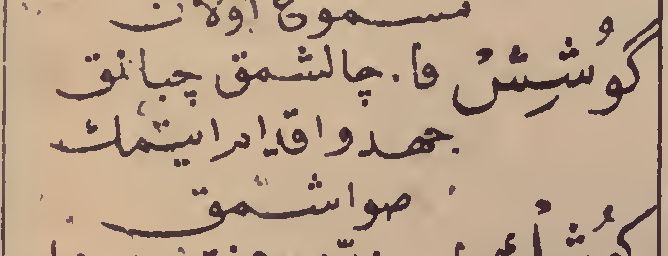 مسموع اولان
گُوشِشْ فا. چالشمق چبانق
جهد و اقدام ایتمك
صواشمق